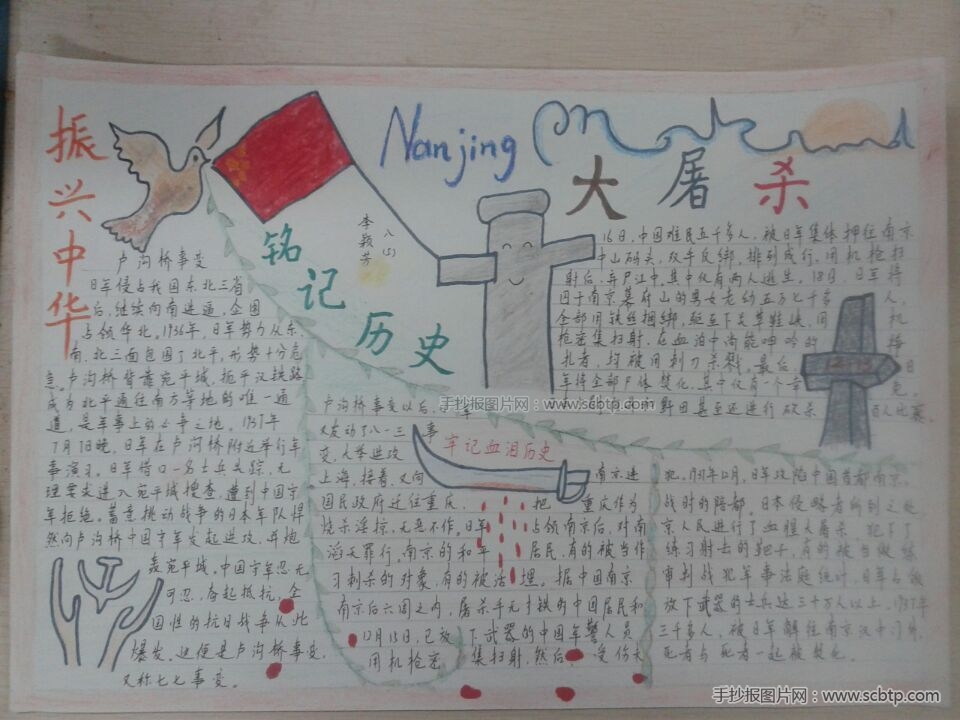 振兴中华
Nanjing
大屠杀
铭记历史
李颖芳
八(5)
卢沟桥事变
日军侵占我国东北三省
后，继续向南进逼，企图
占领华北。1936年，日军势力从东、
南、北三面包围了北平，形势十分危
急。卢沟桥背靠宛平城，扼平汉铁路
成为北平通往南方等地的唯一通
道，是军事上的必争之地。1937年
7月7日晚，日军在卢沟桥附近举行军
事演习。日军借口一名士兵失踪，无
理要求进入宛平城搜查，遭到中国守
军拒绝。蓄意挑动战争的日本军队悍
然向卢沟桥中国守军发起进攻，并炮
轰宛平城。中国守军忍无
可忍，奋起抵抗，全
国性的抗日战争从此
爆发。这便是卢沟桥事变，
又称七七事变。
卢沟桥事变以后，
又发动了八一三事
变，大举进攻
上海，接着，又向
国民政府迁往重庆，
烧杀淫掠，无恶不作。日军
滔天罪行。南京的和平
习刺杀的对象，有的被活埋。据中国南京
南京后六周之内，屠杀手无寸铁的中国居民和
12月15日，已放下武器的中国军警人员
用机枪密集扫射，然后
受伤未
牢记血泪历史
南京进犯。1937年12月，日军攻陷中国首都南京。
把重庆作为战时的陪都。日本侵略者所到之处
占领南京后，对南京人民进行了血腥大屠杀，犯下了
居民，有的被当作练习射击的靶子，有的被当做练
审判战犯军事法庭统计，日军占领
放下武器的士兵达三十万人以上。1937年
三千多人，被日军解往南京汉中门外，
死者与死者一起被焚化。
16日，中国难民五千多人，被日军集体押往南京
中山码头，双手反绑，排列成行，用机枪扫
射后，弃尸江中，其中仅有两人逃生。18日，日军将
囚于南京幕府山的男女老幼五万七千多人，
全部用铁丝捆绑，驱至下关草鞋峡，用机
枪密集扫射，在血泊中尚能呻吟的挣
扎者，均被用刺刀杀戮。最后，日
军将全部尸体焚化，其中仅有一个
野田甚至还进行砍杀百人比赛
手抄报图片网：www.scbtp.com
手抄报图片网：www.scbtp.com